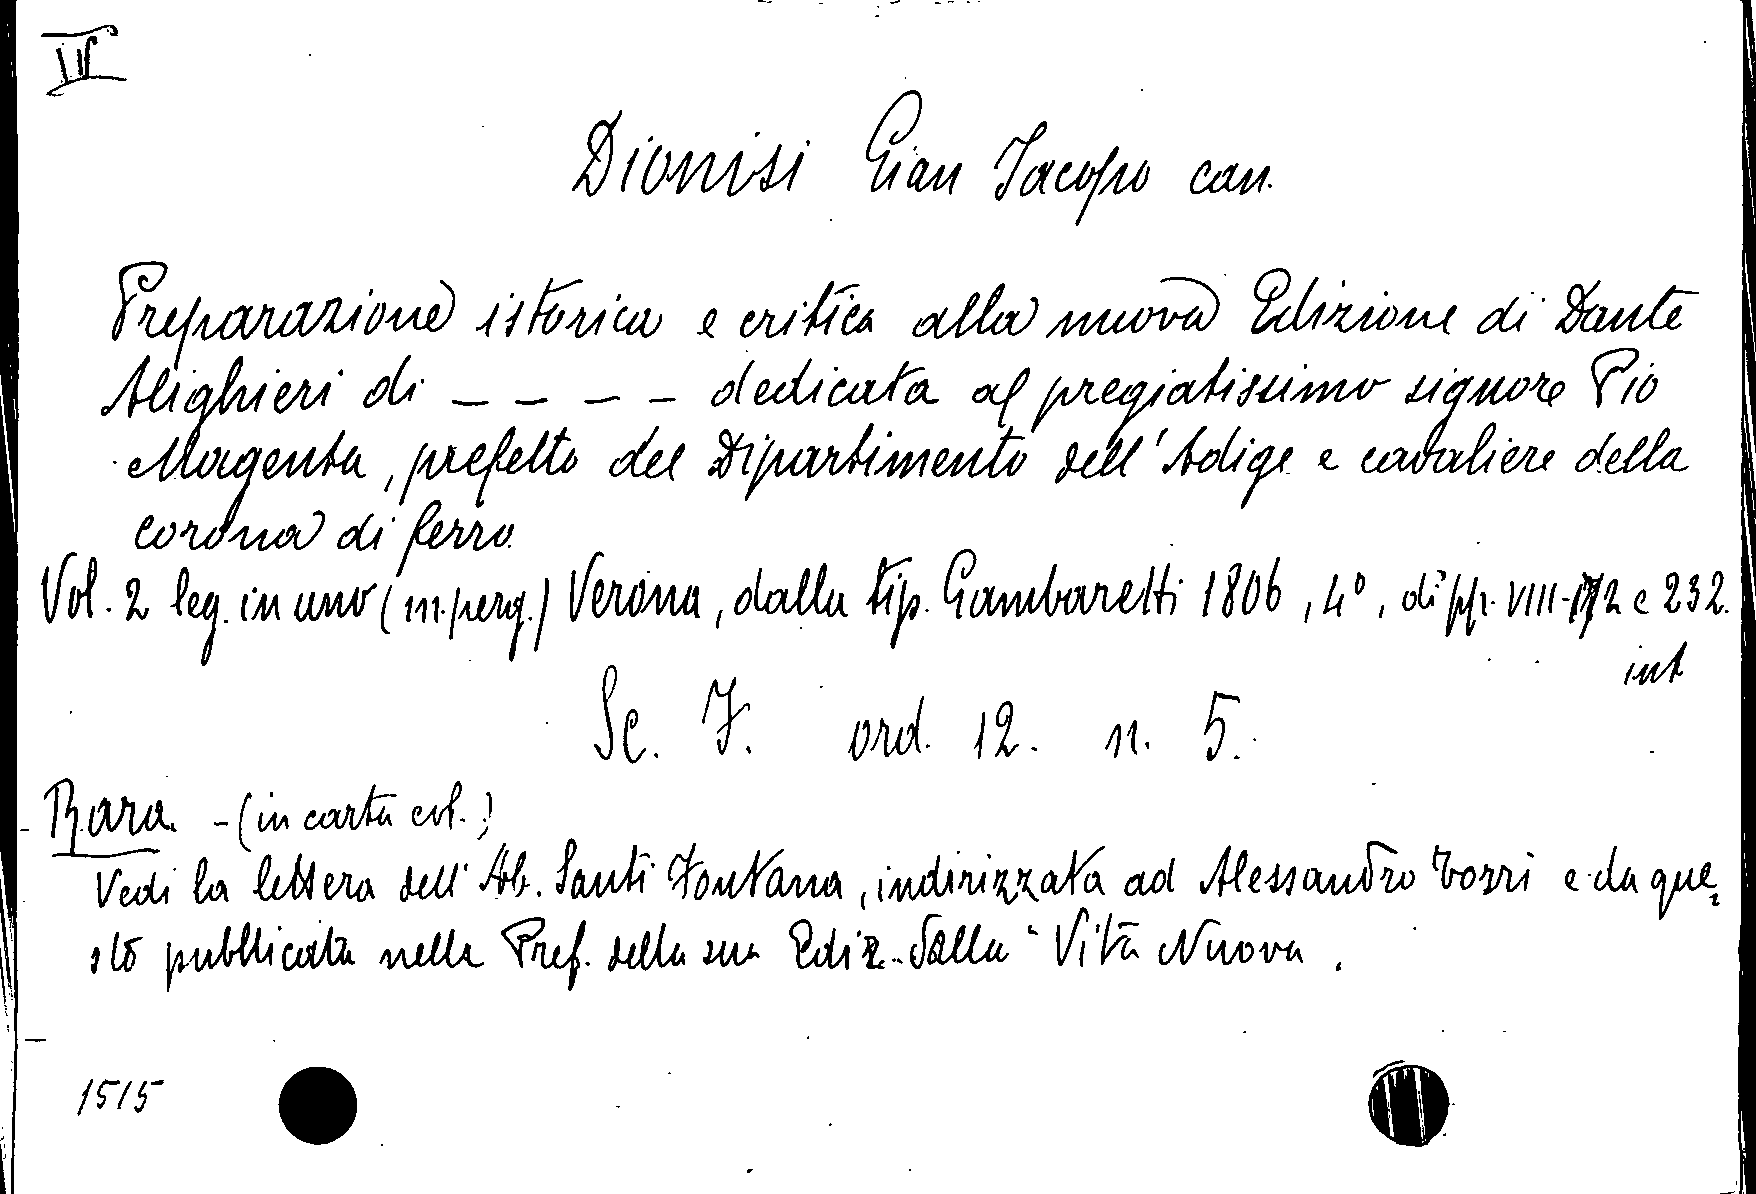 IV
Dionisi Gian Jacopo can.
Preparazione istorica e critica alla nuova Edizione di Dante
Alighieri di _ _ _ _ dedicata al pregiatissimo signore Pio
Magenta, prefetto del Dipartimento dell'Adige e cavaliere della
corona di ferro
Vol. 2 leg. in uno (m. perg.) Verona, dalla tip. Gambaretti 1806, 4°, di pp. VIII-172 e 232.
int
Sc. F. ord. 12. n. 5.
Rara. - (in carta col.)
Vedi la lettera dell'Ab. Santi Fontana, indirizzata ad Alessandro Torri e da que-
sto pubblicata nella Pref. della sua Ediz. della "Vita Nuova.
1515